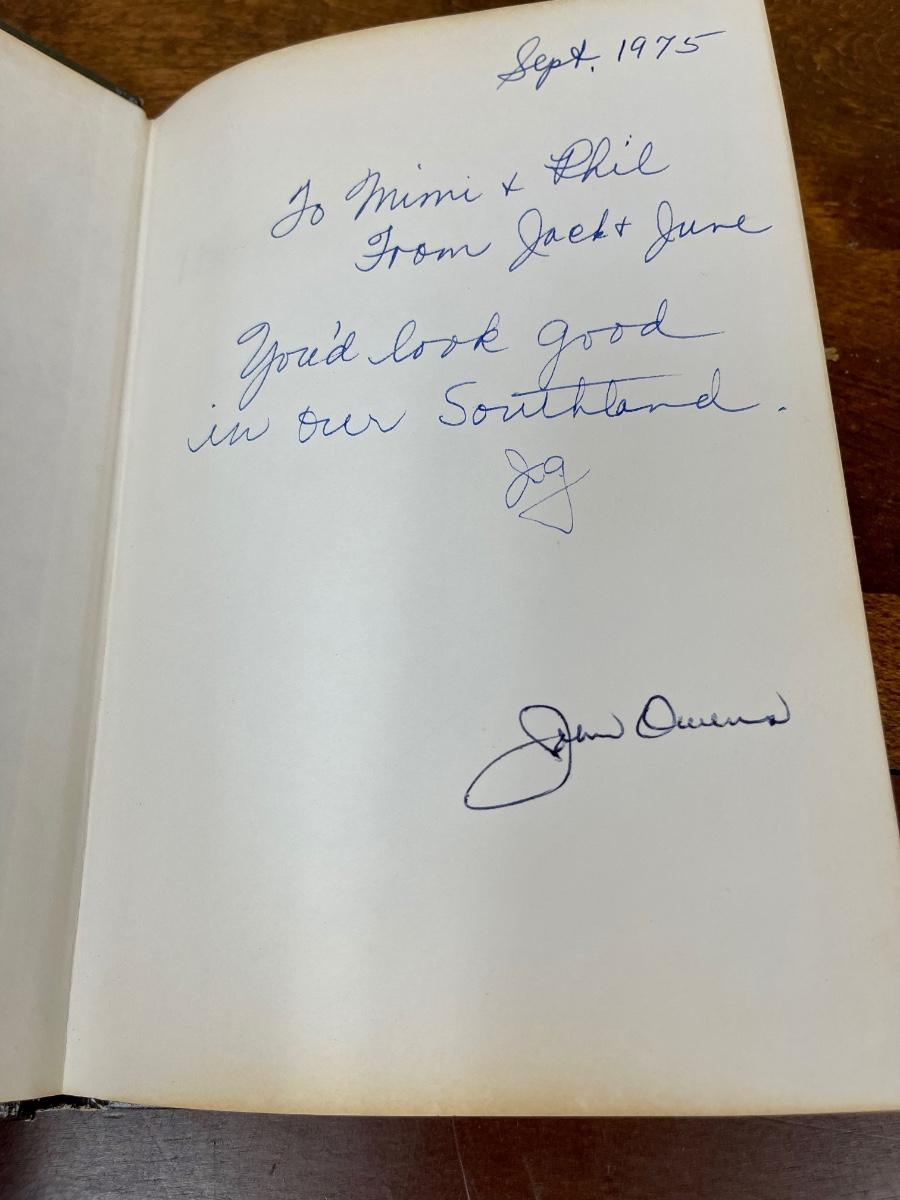 Sept. 1975
To Mimi & Phil
From Jack & June
You'd look good
in our Southland.
JG
John Owens